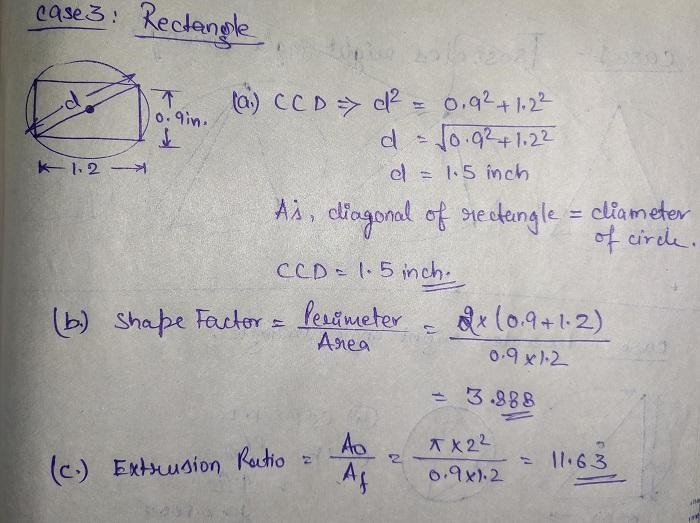 case 3: Rectangle
d
0.9in.
1.2
(a.) CCD ⇒ d² = 0.9² + 1.2²
d = √0.9² + 1.2²
d = 1.5 inch
As, diagonal of rectangle = diameter of circle.
CCD = 1.5 inch.
(b.) Shape Factor = Perimeter / Area = 2 x (0.9 + 1.2) / 0.9 x 1.2
= 3.888
(c.) Extrusion Ratio = A₀ / A_f = π x 2² / 0.9 x 1.2 = 11.63